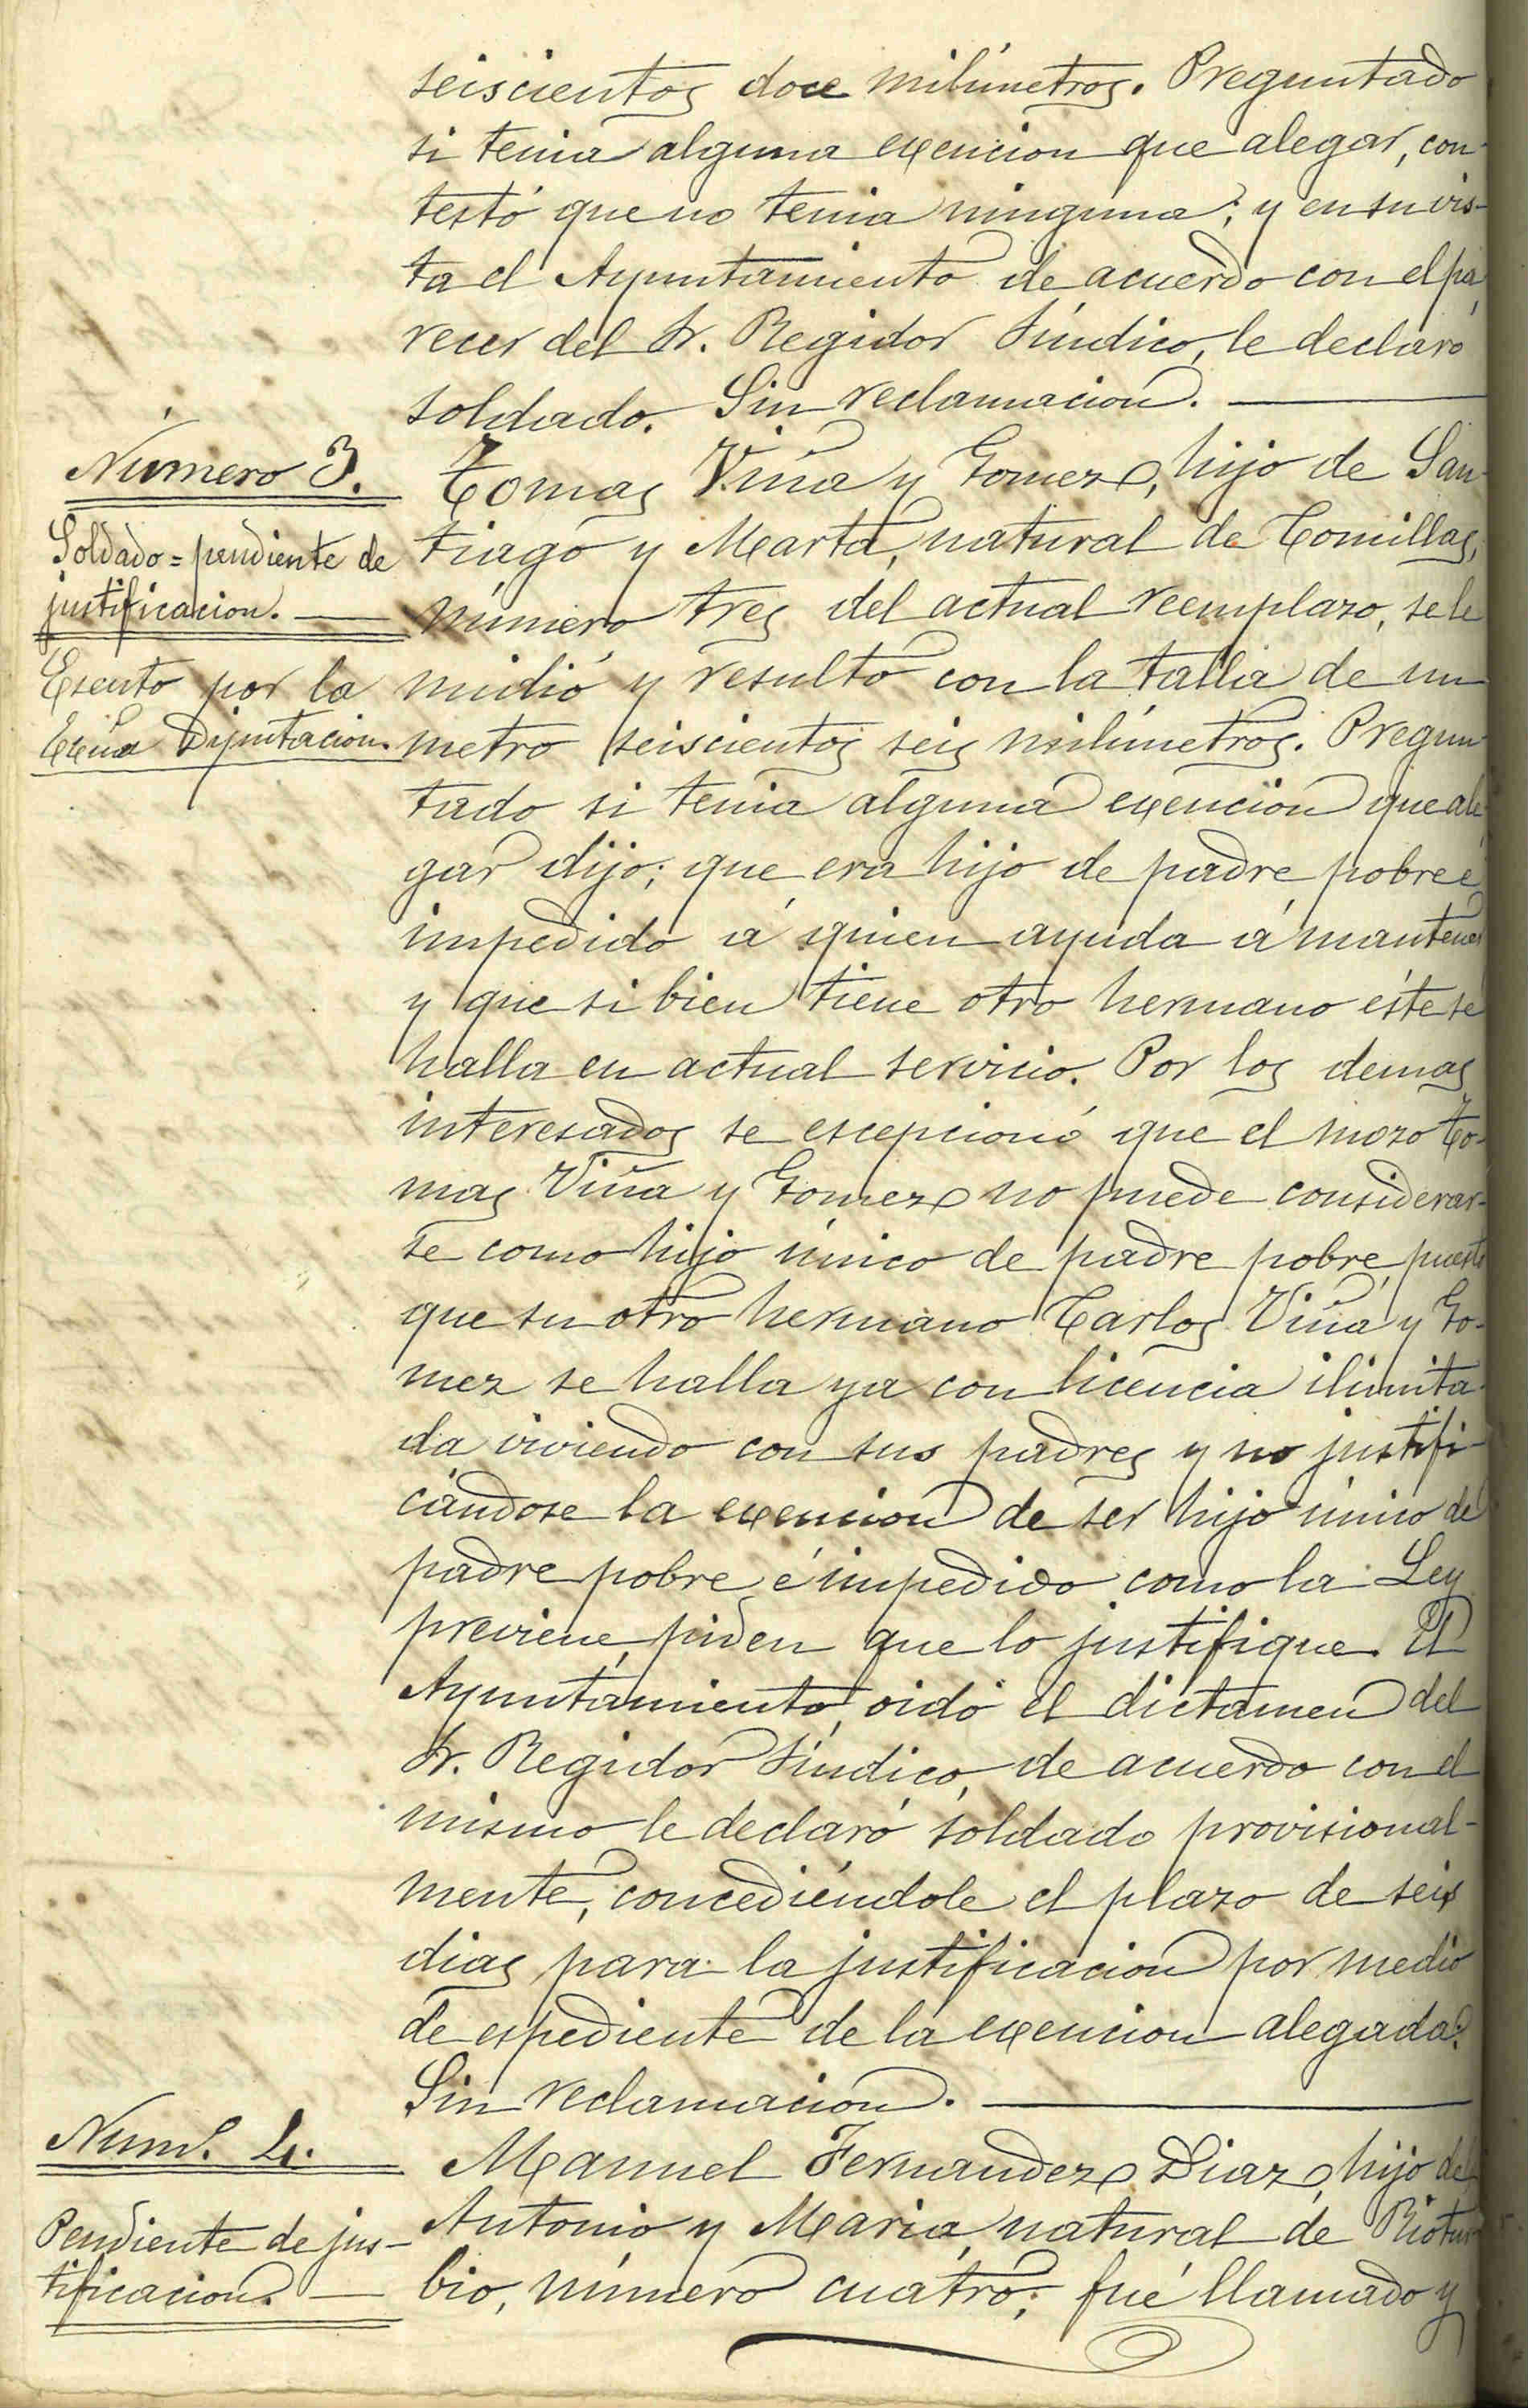 seiscientos doce milímetros. Preguntado
si tenia alguna exencion que alegar, con-
testó que no tenia ninguna; y en su vis-
ta el Ayuntamiento de acuerdo con el pa-
recer del Sr. Regidor Síndico, le declaró
soldado. Sin reclamacion.
Número 3.
Soldado = pendiente de
justificacion.
Esento por la
Excma Diputacion.
Tomas Viña y Gomez, hijo de San-
tiago y Marta, natural de Comillas,
número tres del actual reemplazo, se le
midió y resultó con la talla de un
metro seiscientos seis milímetros. Pregun-
tado si tenia alguna exencion que ale-
gar dijo; que era hijo de padre pobre é
impedido á quien ayuda á mantener
y que si bien tiene otro hermano éste se
halla en actual servicio. Por los demas
interesados se escepcionó que el mozo To-
mas Viña y Gomez no puede considerar-
se como hijo único de padre pobre, puesto
que su otro hermano Carlos Viña y Go-
mez se halla ya con licencia ilimita-
da viviendo con sus padres y no justifi-
cándose la exencion de ser hijo único de
padre pobre é impedido como la Ley
previene, piden que lo justifique. El
Ayuntamiento, oido el dictamen del
Sr. Regidor Síndico, de acuerdo con el
mismo le declaró soldado provisional-
mente, concediéndole el plazo de seis
dias para la justificacion por medio
de espediente de la exencion alegada.
Sin reclamacion.
Num. 4.
Pendiente de jus-
tificacion.
Manuel Fernandez Diaz, hijo de
Antonio y Maria, natural de Riotur-
bio, número cuatro; fué llamado y